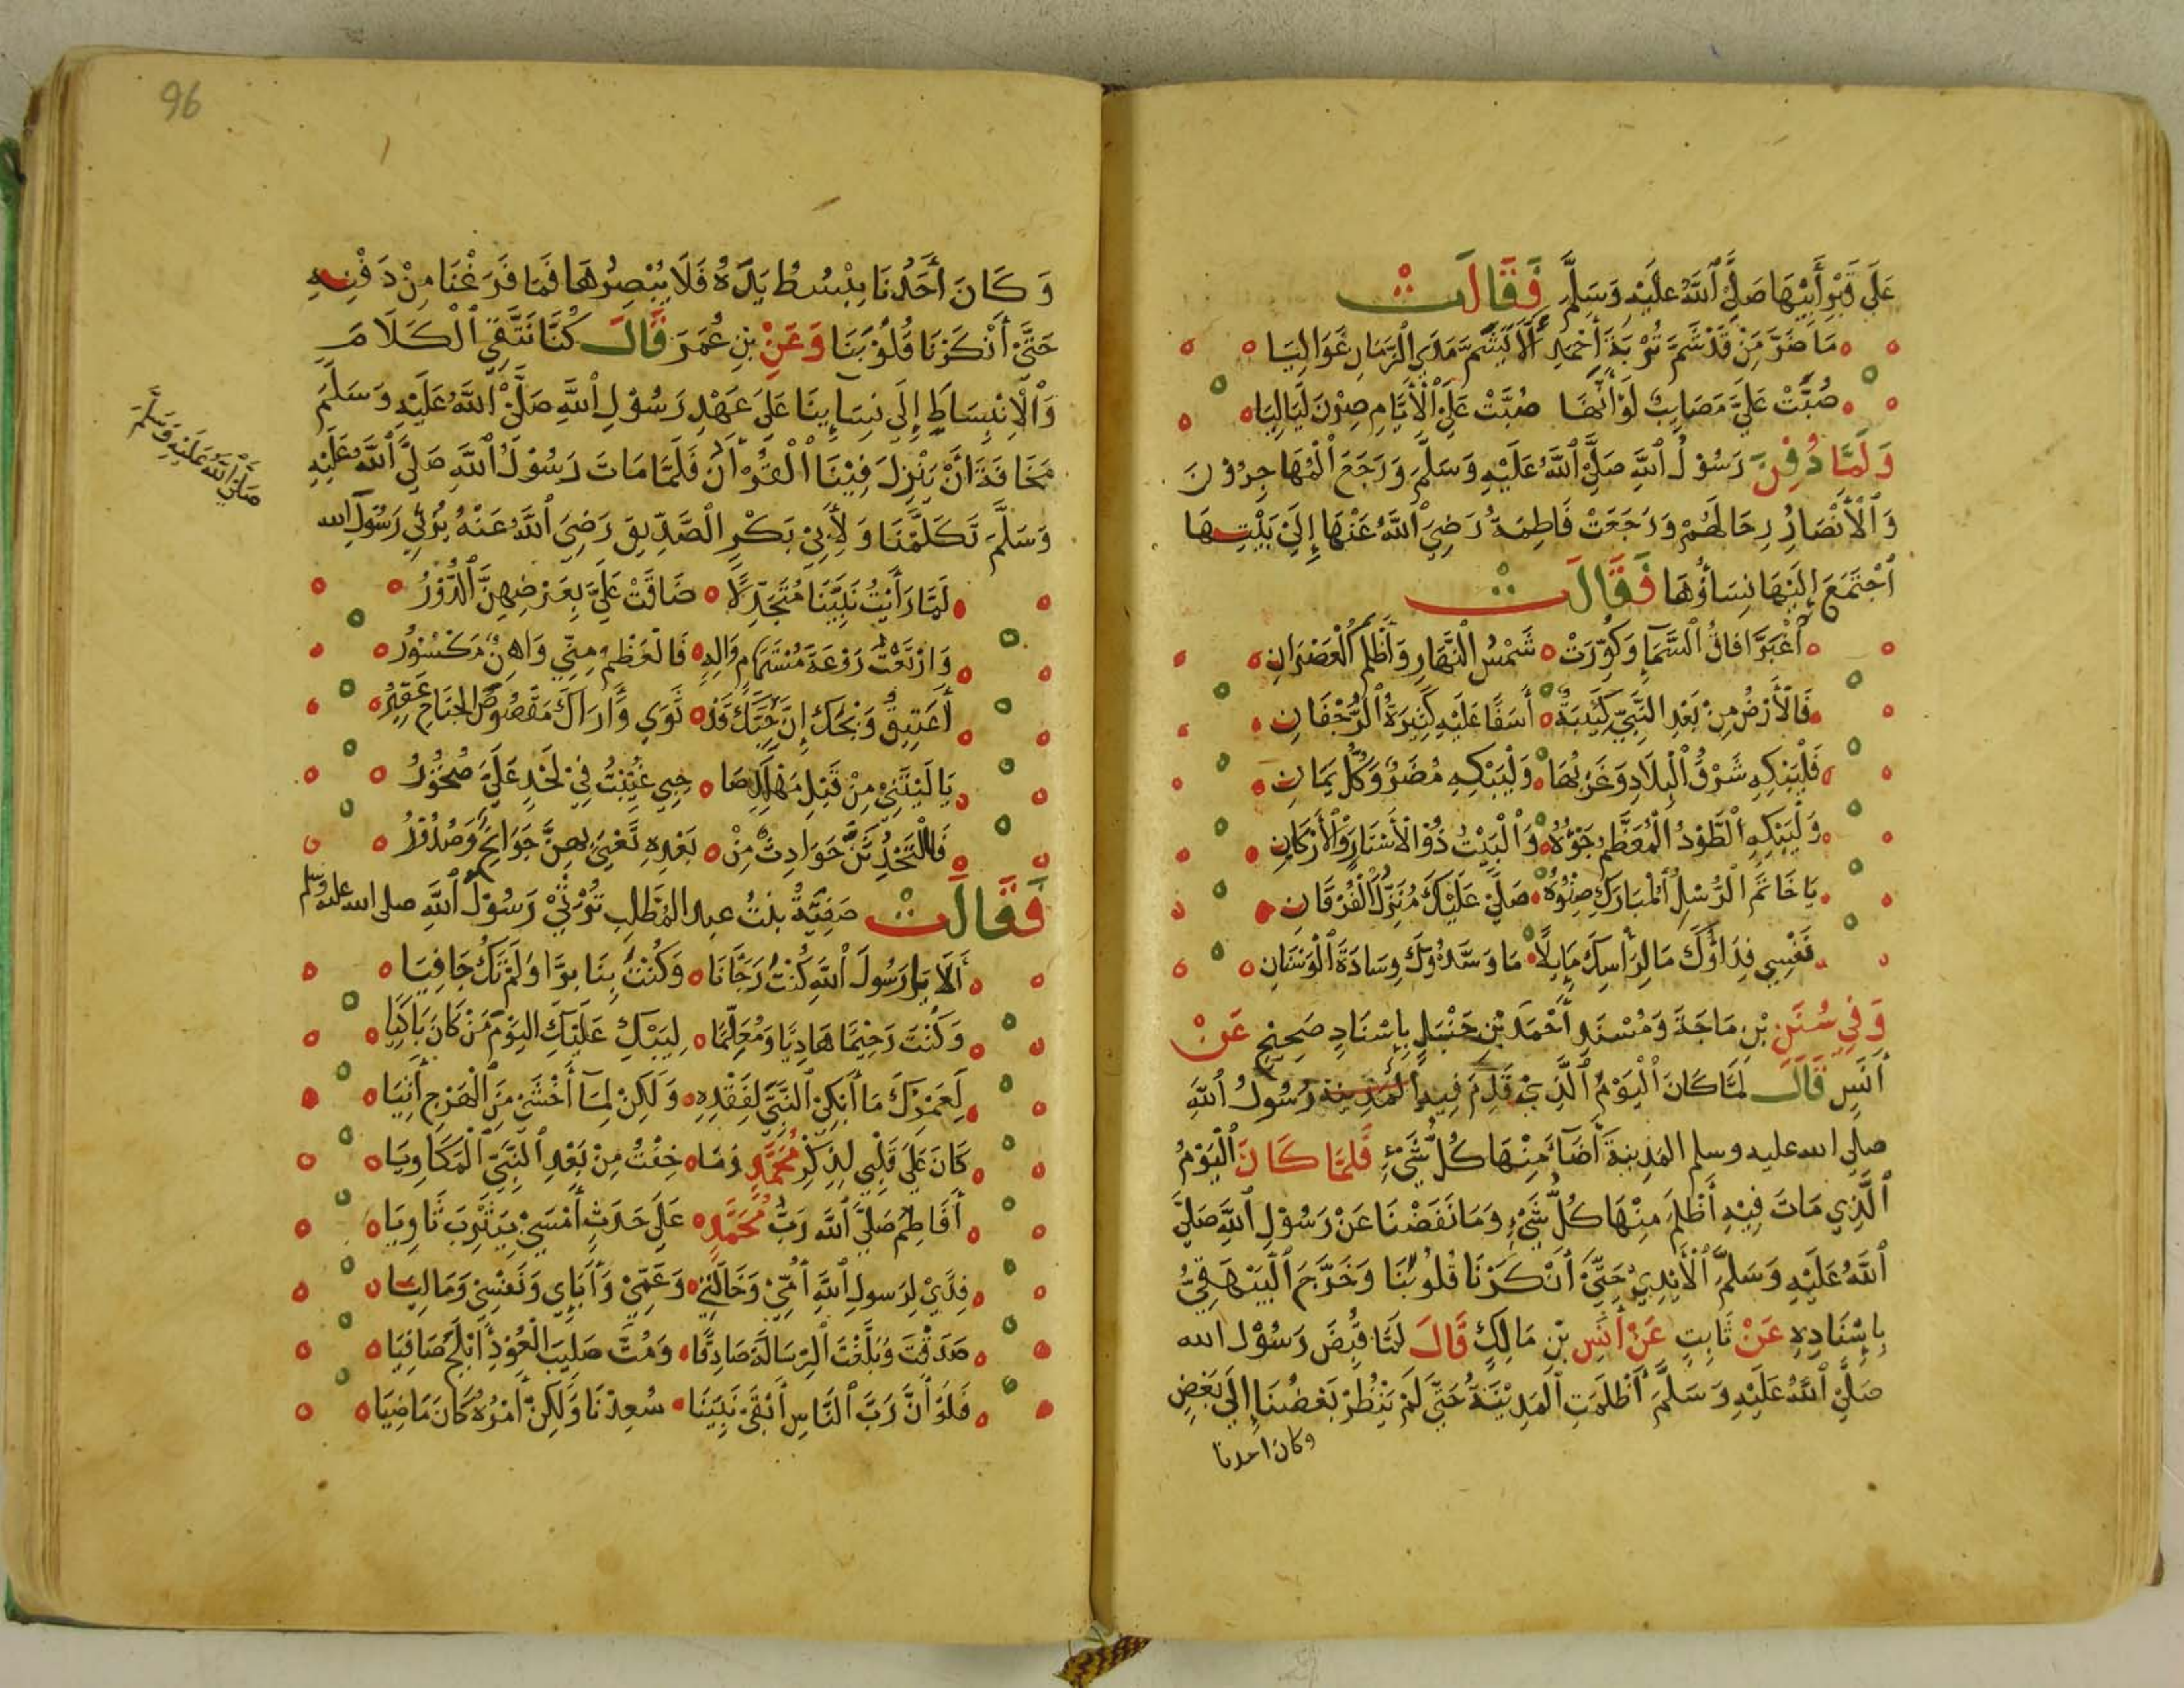 عَلَى قَبْرِ أَبِيْهَا صَلَّى ٱللَّهُ عَلَيْهِ وَسَلَّمَ فَقَالَتْ
مَا ضَرَّ مَنْ قَدْ شَمَّ تُرْبَةَ أَحْمَدٍ أَلَّا يَشُمَّ مَدَى الزَّمَانِ غَوَالِيَا
صُبَّتْ عَلَيَّ مَصَايِبٌ لَوْ أَنَّهَا صُبَّتْ عَلَى الْأَيَّامِ صِرْنَ لَيَالِيَا
وَلَمَّا دُفِنَ رَسُوْلُ ٱللَّهِ صَلَّى ٱللَّهُ عَلَيْهِ وَسَلَّمَ وَرَجَعَ الْمُهَاجِرُوْنَ
وَٱلْأَنْصَارُ رِحَالَهُمْ وَرَجَعَتْ فَاطِمَةُ رَضِيَ ٱللَّهُ عَنْهَا إِلَى بَيْتِهَا
ٱجْتَمَعَ إِلَيْهَا نِسَاؤُهَا فَقَالَتْ
أَغْبَرَّ افَاقُ السَّمَآءِ وَكُوِّرَتْ شَمْسُ النَّهَارِ وَأَظْلَمَ الْعَصْرَانِ
فَالْأَرْضُ مِنْ بَعْدِ النَّبِيِّ كَئِيْبَةٌ أَسَفًا عَلَيْهِ كَثِيرَةُ الرَّجْفَانِ
فَلْيَبْكِهِ شَرْقُ الْبِلَادِ وَغَرْبُهَا وَلْيَبْكِهِ مُضَرٌ وَكُلُّ يَمَانِ
وَلْيَبْكِهِ الطَّوْدُ الْمُعَظَّمُ جَوُّهُ وَالْبَيْتُ ذُوْ الْأَسْتَارِ وَالْأَرْكَانِ
يَا خَاتَمَ الرُّسْلِ الْمُبَارَكِ صِنْوُهُ صَلَّى عَلَيْكَ مُنَزِّلُ الْفُرْقَانِ
نَفْسِي فِدَاؤُكَ مَا لِرَأْسِكَ مَايِلًا مَا وَسَّدُوْكَ وِسَادَةَ الْوَسْنَانِ
وَفِي سُنَنِ بْنِ مَاجَةَ وَمُسْنَدِ أَحْمَدَ بْنِ حَنْبَلٍ بِإِسْنَادٍ صَحِيْحٍ عَنْ
أَنَسٍ قَالَ لَمَّا كَانَ الْيَوْمُ ٱلَّذِيْ قَدِمَ فِيهِ الْمَدِينَةَ رَسُولُ ٱللَّهِ
صلى الله عليه وسلم المَدِينَةَ أَضَآءَ مِنْهَا كُلُّ شَيْءٍ فَلَمَّا كَانَ الْيَوْمُ
ٱلَّذِي مَاتَ فِيْهِ أَظْلَمَ مِنْهَا كُلُّ شَيْءٍ وَمَا نَفَضْنَا عَنْ رَسُوْلِ ٱللَّهِ صَلَّى
ٱللَّهُ عَلَيْهِ وَسَلَّمَ الْأَيْدِيْ حَتَّى أَنْكَرْنَا قُلُوْبُنَا وَخَرَّجَ الْبَيْهَقِيُّ
بِإِسْنَادِهِ عَنْ ثَابِتٍ عَنْ أَنَسِ بْنِ مَالِكٍ قَالَ لَمَّا قُبِضَ رَسُوْلُ الله
صَلَّى ٱللَّهُ عَلَيْهِ وَسَلَّمَ أَظْلَمَتِ الْمَدِيْنَةُ حَتَّى لَمْ يَنْظُرْ بَعْضُنَا إِلَى بَعْضٍ
وكان احدنا
96
وَكَانَ أَحَدُنَا يَبْسُطُ يَدَهُ فَلَا يُبْصِرُهَا فَمَا فَرَغْنَا مِنْ دَفْنِهِ
حَتَّى أَنْكَرْنَا قُلُوْبَنَا وَعَنْ بْنِ عُمَرَ قَالَ كُنَّا نَتَّقِي الْكَلَامَ
وَالْاِنْبِسَاطِ إِلَى نِسَايِنَا عَلَى عَهْدِ رَسُوْلِ ٱللَّهِ صَلَّى ٱللَّهُ عَلَيْهِ وَسَلَّمَ
مَخَافَةَ أَنْ يَنْزِلَ فِيْنَا الْقُرْآنُ فَلَمَّا مَاتَ رَسُوْلُ ٱللَّهِ صَلَّى ٱللَّهُ عَلَيْهِ
وَسَلَّمَ تَكَلَّمْنَا وَلِأَبِيْ بَكْرٍ الصِّدِّيقِ رَضِيَ ٱللَّهُ عَنْهُ يَرْثِي رَسُوْلَ الله
صَلَّى ٱللَّهُ عَلَيْهِ وَسَلَّمَ
لَمَّا رَأَيْتُ نَبِيَّنَا مُتَجَدِّلًا ضَاقَتْ عَلَيَّ بِعَرْضِهِنَّ الدُّوْرُ
وَارْتَعْتُ رَوْعَةَ مُسْتَهَامٍ وَالِهٍ فَالْعَظْمُ مِنِّي وَاهِنٌ مَكْسُوْرُ
أَعَتِيْقُ وَيْحَكَ إِنَّ حِبَّكَ قَدْ ثَوَى وَأَرَاكَ مَقْصُوْصُ الجَنَاحِ عَقِيْرُ
يَا لَيْتَنِيْ مِنْ قَبْلِ مَهْلَكِ صَاحِبِي غُيِّبْتُ فِيْ لَحْدٍ عَلَيَّ صُخُوْرُ
فَلَتَحْدُثَنَّ حَوَادِثٌ مِنْ بَعْدِهِ تَعْيَى بِهِنَّ جَوَانِحٌ وَصُدُوْرُ
فَقَالَتْ صَفِيَّةُ بِنْتُ عبد المُطَّلِبِ تَرْثِيْ رَسُوْلَ ٱللَّهِ صلى الله عليه وسلم
أَلَا يَا رَسُولَ ٱللَّهِ كُنْتَ رَجَّانَا وَكُنْتَ بِنَا بَرًّا وَلَمْ تَكُ جَافِيَا
وَكُنْتَ رَحِيْمًا هَادِيًا وَمُعَلِّمًا لِيَبْكِ عَلَيْكَ اليَوْمَ مَنْ كَانَ بَاكِيَا
لَعَمْرُكَ مَا أَبْكِي النَّبِيَّ لِفَقْدِهِ وَلَكِنْ لِمَا أَخْشَى مِنَ الْهَرْجِ آتِيَا
كَانَ عَلَى قَلْبِي لِذِكْرِ مُحَمَّدٍ وَمَا خِفْتُ مِنْ بَعْدِ النَّبِيِّ الْمَكَاوِيَا
أَفَاطِمُ صَلَّى ٱللَّهُ رَبُّ مُحَمَّدٍ عَلَى جَدَثٍ أَمْسَى بِيَثْرِبَ ثَاوِيَا
فِدًى لِرَسُولِ ٱللَّهِ أُمِّيْ وَخَالَتِيْ وَعَمِّيْ وَآبَايِ وَنَفْسِيْ وَمَالِيَا
صَدَقْتَ وَبَلَّغْتَ الرِّسَالَةَ صَادِقًا وَمُتَّ صَلِيبَ الْعُوْدِ أَبْلَجَ صَافِيَا
فَلَوْ أَنَّ رَبَّ النَّاسِ أَبْقَى نَبِيَّنَا سُعِدْنَا وَلَكِنْ أَمْرُهُ كَانَ مَاضِيَا